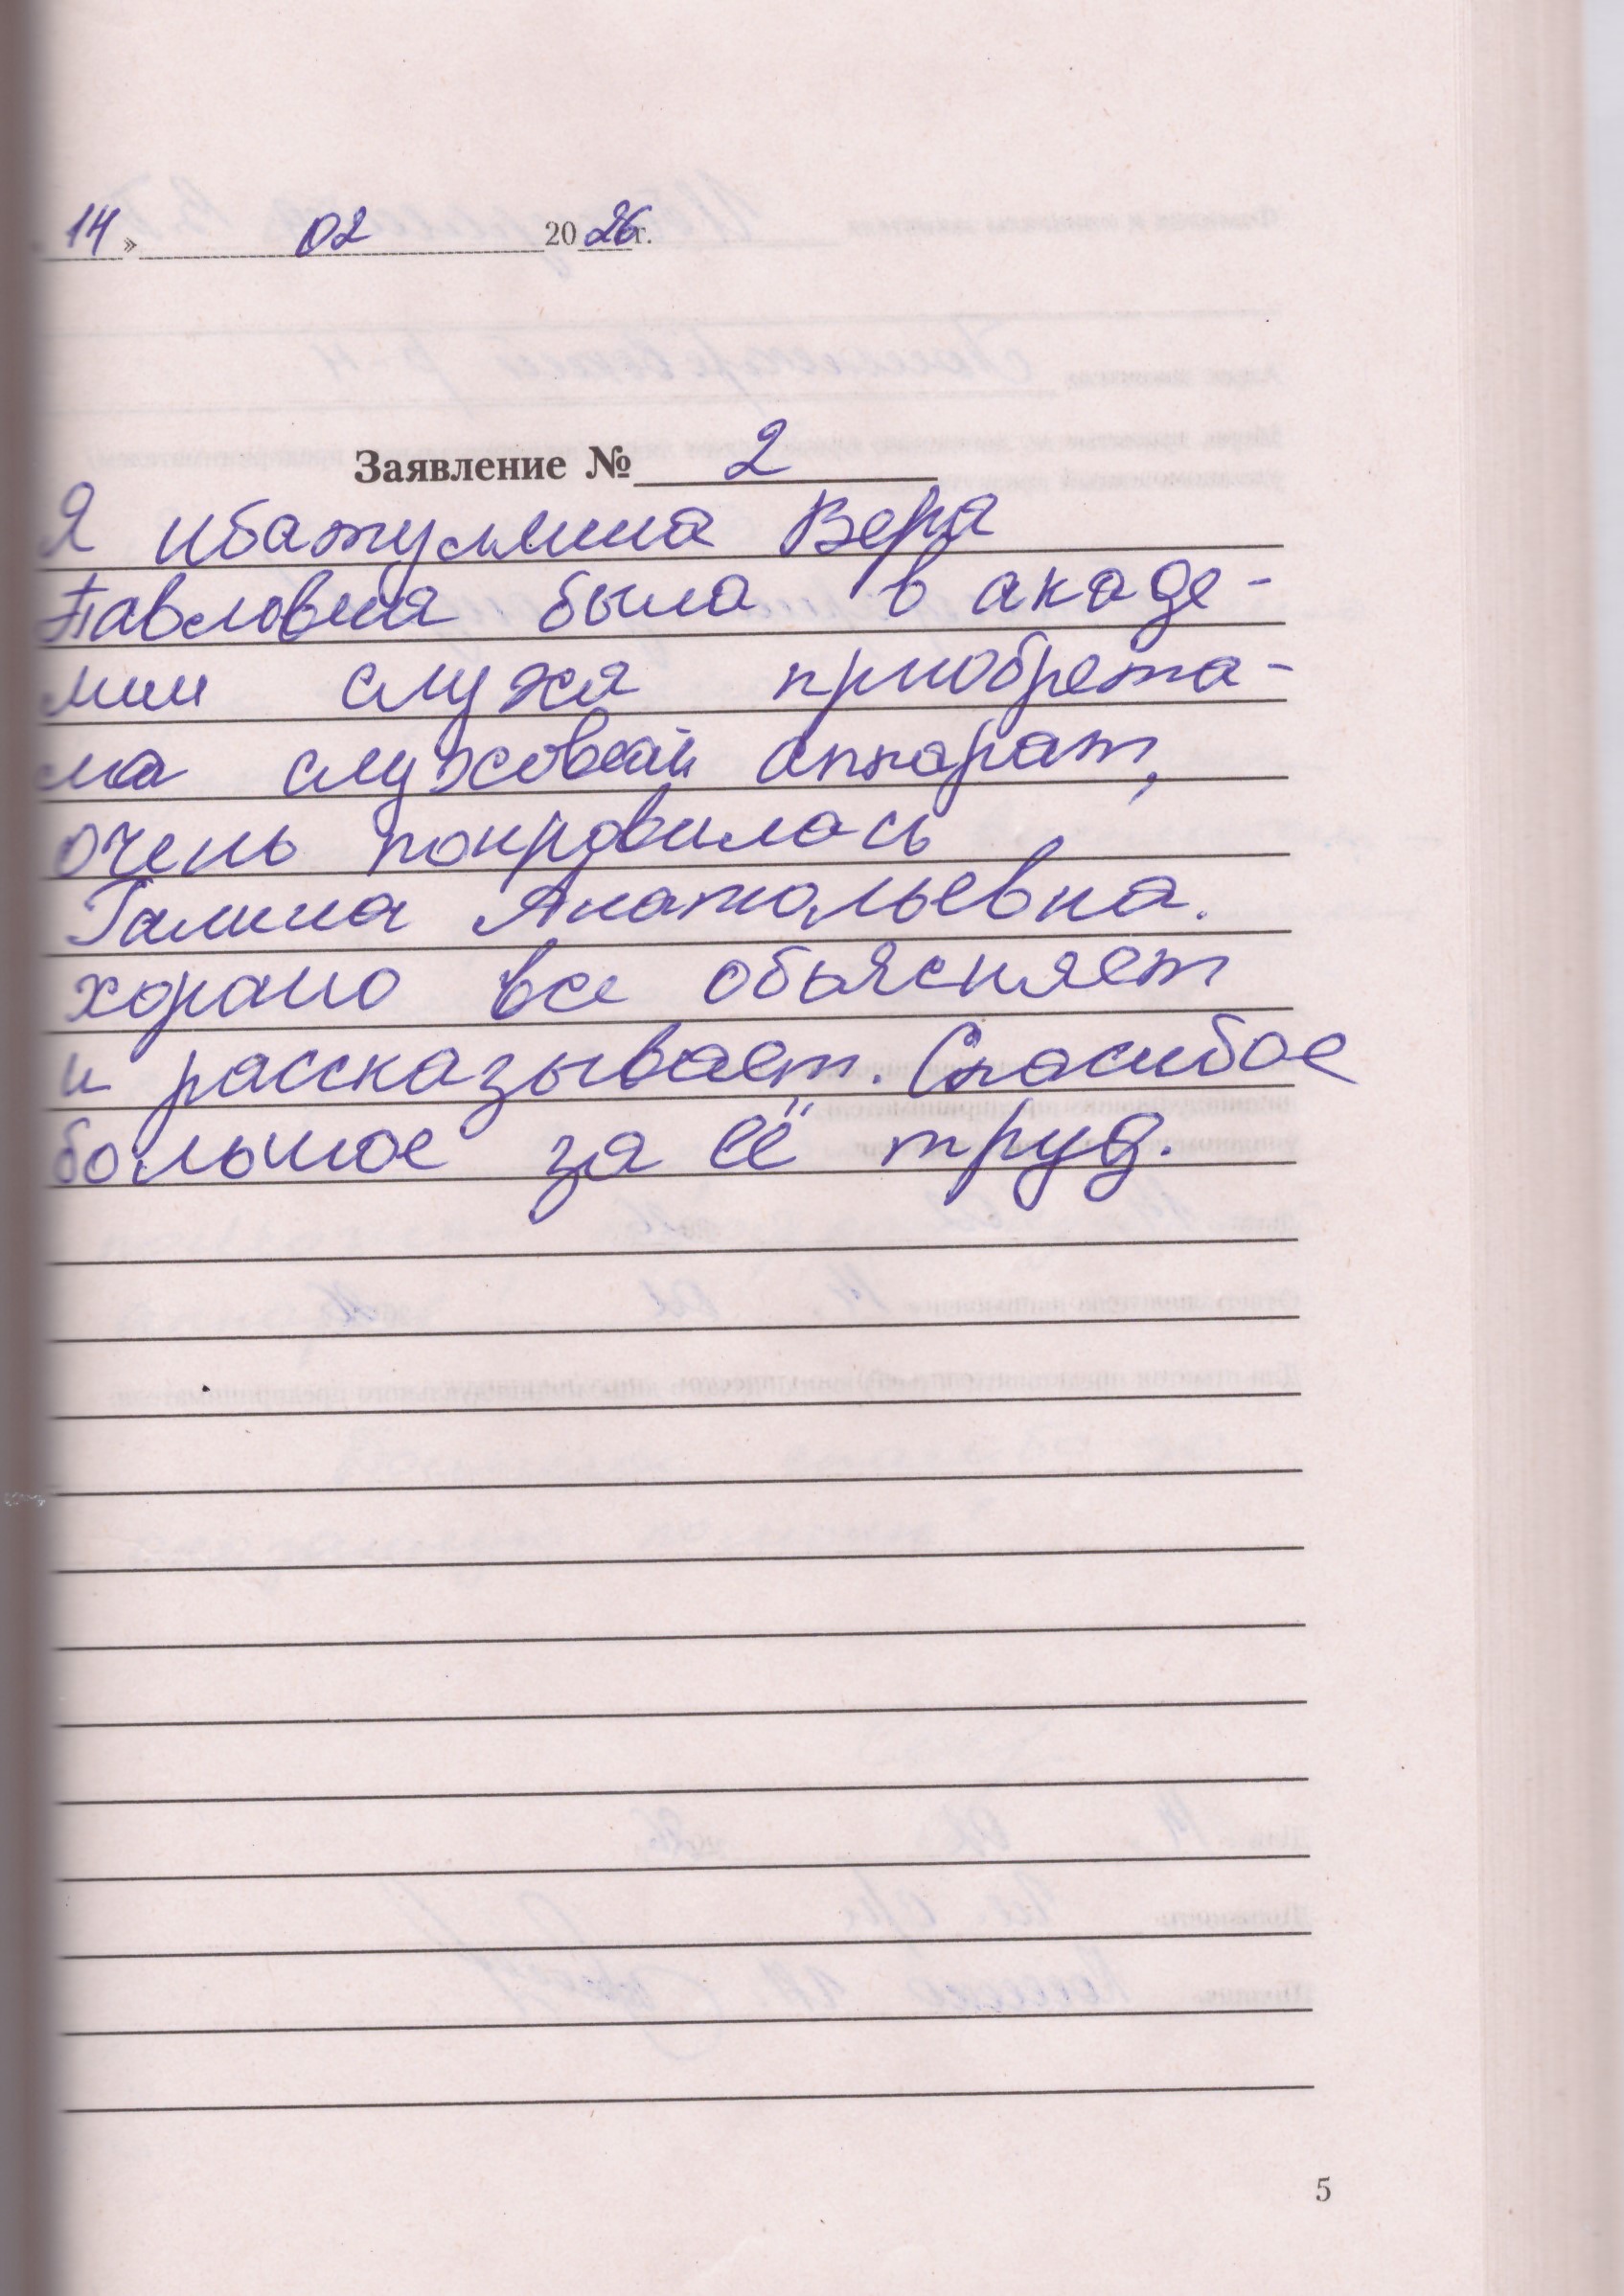 14 » 02 20 26 г.
Заявление № 2
Я Ибатулина Вера
Павловна была в акаде-
мии слуха приобрета-
ла слуховой аппарат,
очень понравилась
Галина Анатольевна.
хорошо все объясняет
и рассказывает. Спасибое
большое за её труд.
5